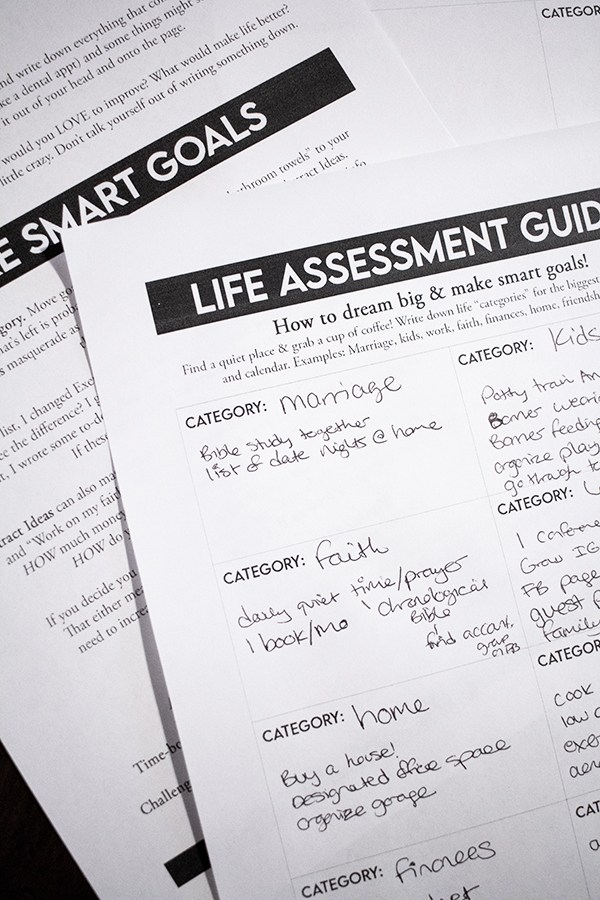 nd write down everything that co
ke a dental appt) and some things might s
it out of your head and onto the page.
would you LOVE to improve? What would make life better?
little crazy. Don't talk yourself out of writing something down.
E SMART GOALS
throom towels" to your
ract Ideas.
gory. Move go
hat's left is prob
s masquerade as
list. I changed Exe
ce the difference? I g
t, I wrote some to-d
If these
ract Ideas can also ma
and "Work on my fait
HOW much money
HOW do y
If you decide you
That either me
need to incre
Time-bo
Challeng
CATEGOR
LIFE ASSESSMENT GUID
How to dream big & make smart goals!
Find a quiet place & grab a cup of coffee! Write down life "categories" for the biggest
and calendar. Examples: Marriage, kids, work, faith, finances, home, friendsh
CATEGORY: marriage
Bible study together
list of date nights @ home
CATEGORY: Kids
Potty train An
Bomer wearin
Bomer feeding
organize play
go through to
CATEGORY: faith
daily quiet time/prayer
1 book/mo
chronological
Bible
find accont.
group
on FB
CATEGORY:
1 conferen
Grow IG
FB page
guest p
family
CATEGORY: home
Buy a house!
Designated office space
organize garage
CATEGOR
cook
low c
exer
aer
CATEGORY: finances
CAT